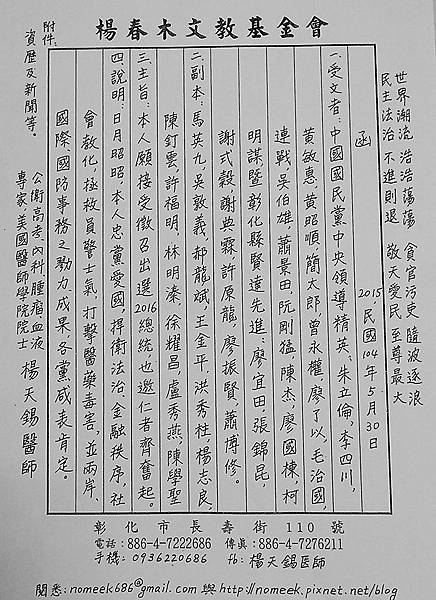 楊春木文教基金會
世界潮流 浩浩蕩蕩 貪官污吏 隨波逐浪
民主法治 不進則退 敬天愛民 至尊最大
函 2015,民國104年5月30日
一.受文者:中國國民黨中央領導精英:朱立倫,李四川,
黃敏惠,黃昭順,簡太郎,曾永權,廖了以,毛治國,
連戰,吳伯雄,蕭景田,阮剛猛,陳杰,廖國棟,柯
明謀暨彰化縣賢達先進:廖宜田,張錦昆,
謝式穀,謝典霖,許原龍,廖振賢,蕭博修。
二.副本:馬英九,吳敦義,郝龍斌,王金平,洪秀柱,楊志良,
陳釘雲,許福明,林明溱,徐耀昌,盧秀燕,陳學聖
三.主旨:本人願接受徵召出選2016總統也邀仁者齊奮起。
四.說明:日月昭昭,本人忠黨愛國,捍衛法治,金融秩序,社
會教化,拯救員警士氣,打擊醫藥毒害,並兩岸、
國際國防事務之勠力,成果各黨咸表肯定。
公衛高考,內科腫瘤血液
專家,美國醫師學院院士 楊天錫醫師
附件:
資歷及新聞等。
彰化市長壽街110號
電話:886-4-7222686 傳眞:886-4-7276211
手機:0936220686 fb:楊天錫医師
閱悉:nomeek686@gmail.com與http://nomeek.pixnet.net/blog